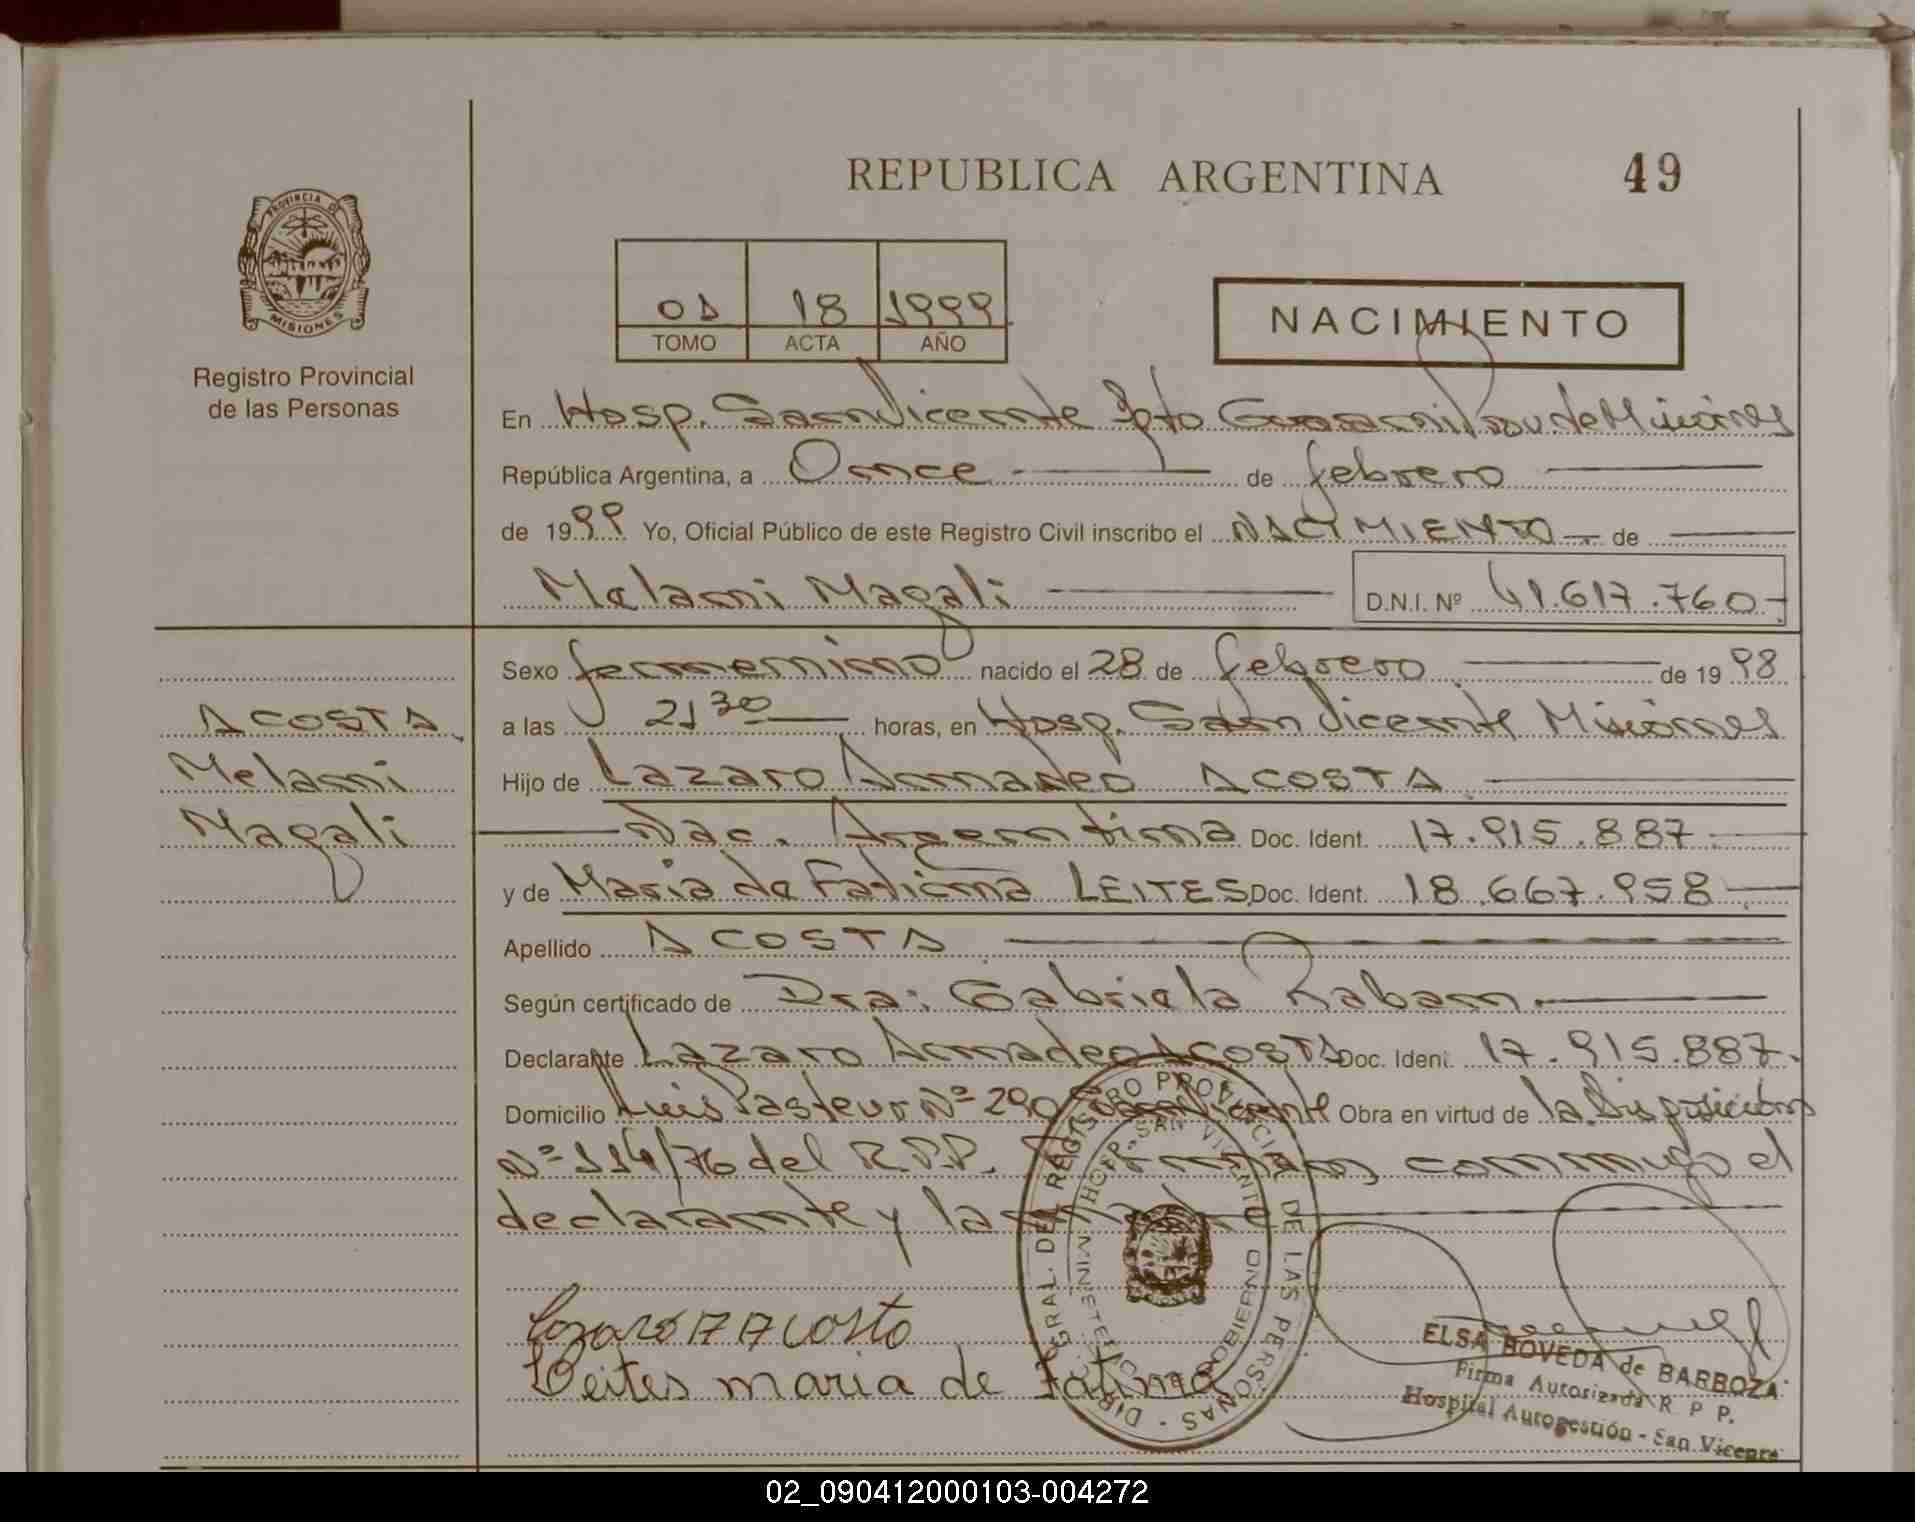 REPUBLICA ARGENTINA
49
PROVINCIA DE
MISIONES
Registro Provincial
de las Personas
01 18 1999
TOMO ACTA AÑO
NACIMIENTO
En Hosp. San Vicente Dpto Guarani Prov. de Misiones
República Argentina, a Once de febrero
de 1999 Yo, Oficial Público de este Registro Civil inscribo el NACIMIENTO de
Melani Magali D.N.I. Nº 41.617.760
Sexo femenino nacido el 28 de febrero de 1998
a las 21 30 horas, en Hosp. San Vicente Misiones
Hijo de Lazaro Amadeo ACOSTA
Nac. Argentina Doc. Ident. 17.915.887
y de Maria de Fatima LEITES Doc. Ident. 18.667.958
Apellido ACOSTA
Según certificado de Dra: Gabriela Raban
Declarante Lazaro Amadeo ACOSTA Doc. Ident. 17.915.887
Domicilio Luis Pasteur Nº 290 San Vicente Obra en virtud de la Disposición
Nº 114/76 del R.P.P. Firman conmigo el
declarante y la madre
ACOSTA
Melani
Magali
Lazaro A Acosta
Leites maria de Fatima
DIR. GRAL. DEL REGISTRO PROVINCIAL DE LAS PERSONAS
HOSP. SAN VICENTE
MINISTERIO DE GOBIERNO
ELSA BOVEDA de BARBOZA
Firma Autorizada R P P.
Hospital Autogestión - San Vicente
02_090412000103-004272